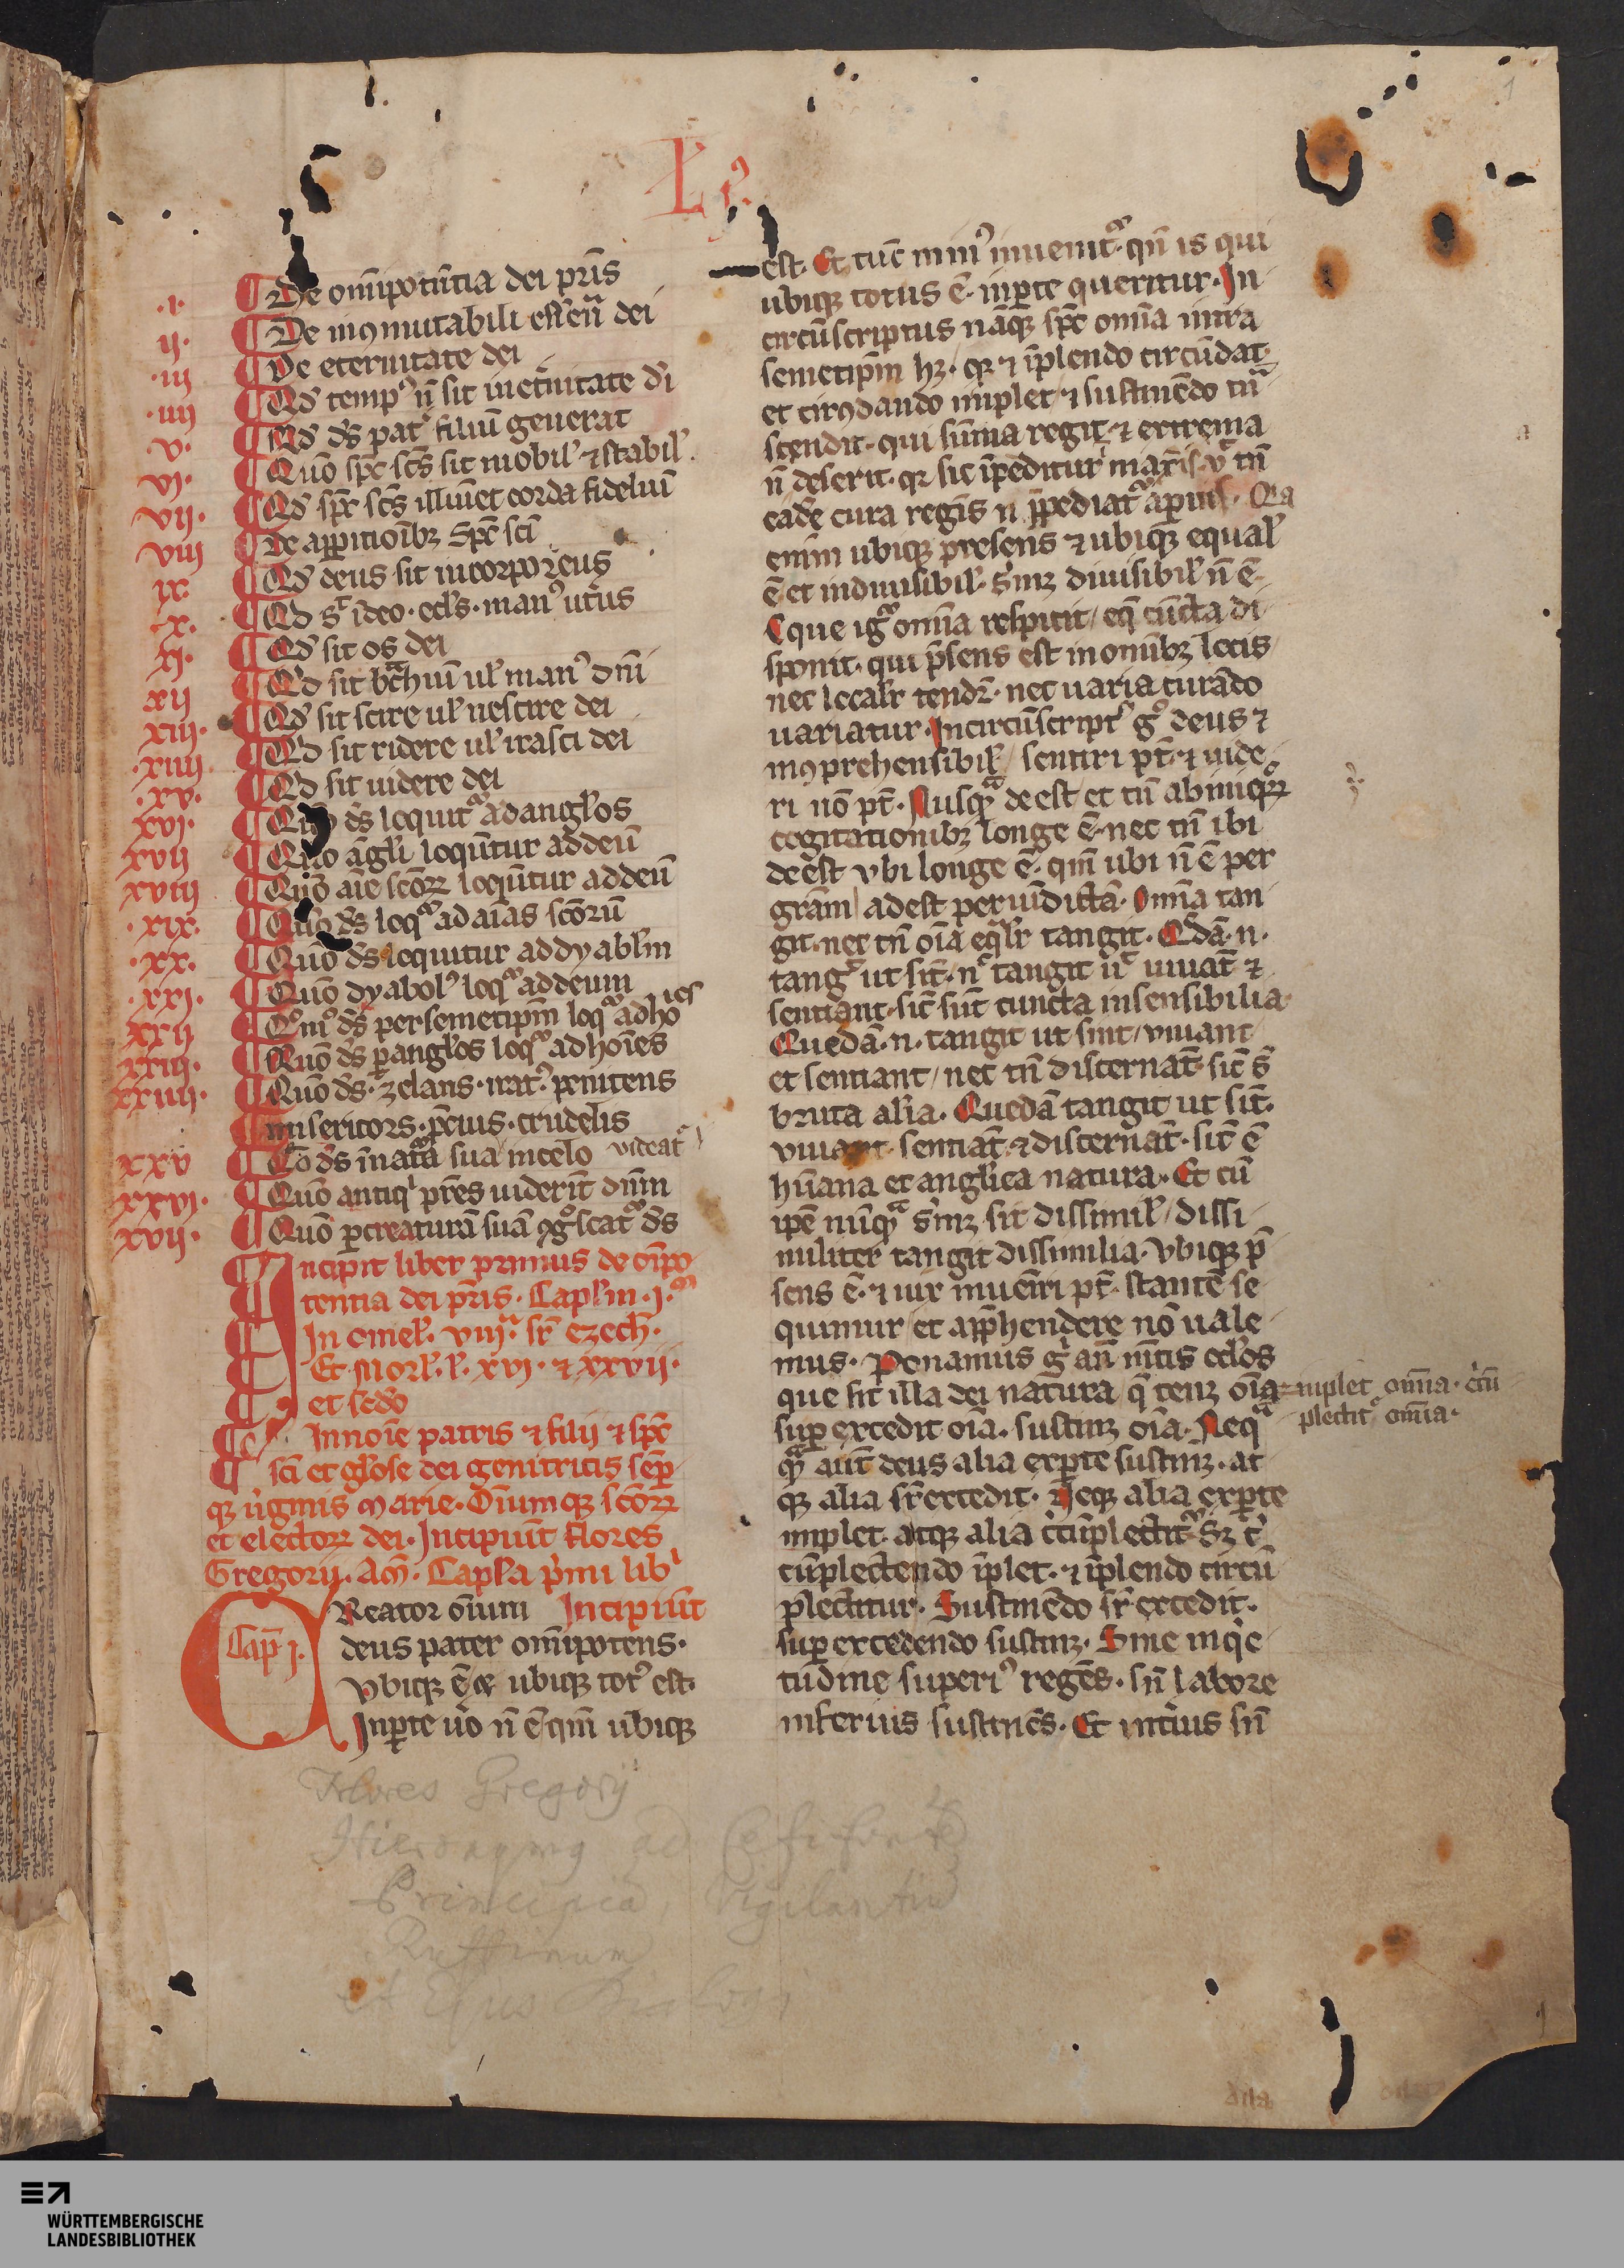 L. I.
1
.i. De om̄ipotētia dei pr̄is
ii. De incōmutabili essen̄a dei
.iii De eternitate dei
.iiii Qd̄ temp⁹ n̄ sit in et̄nitate di
v. Qd̄ ds̄ pat̓ filiū generat
vi. Quō spc̄ sc̄s sit mobil̓ ⁊ stabil̓.
vii. Qd̄ spc̄ sc̄s illuīet corda fideliū
viii De apparitiōibꝫ spc̄ sc̄i
ix. Qd̄ deus sit incorporeus
.x. Qd̄ st̄ i deo. ocl̓s. man⁹ ut̓us
xi. Qd̄ sit os dei
xii Qd̄ sit brachiū ul̓ man⁹ dn̄i
xiii. Qd̄ sit scire ul̓ nescire dei
.xiiii Qd̄ sit ridere ul̓ irasci dei
.xv. Qd̄ sit uidere dei
xvi. Quō ds̄ loquit̓ ad angl̓os
xvii Quō āgl̓i loqūtur ad deū
xviii Quō aīe sc̄oꝝ loqūtur ad deū
.xix. Quō ds̄ loq̓ ad aīas sc̄orū
.xx. Quō ds̄ loquitur ad dyabl̓m
.xxi. Quō dyabol⁹ loq̓ ad deum
xxii Qº mº ds̄ per semetip̄m loq̓ ad hoīes
xxiii. Quō ds̄ ꝑ angl̓os loq̓ ad hoīes
xxiiii. Quō ds̄. zelans. irat⁹. penitens
misericors. p̄cius. crudelis
xxv Qō ds̄ in nat̓a sua in celo videat̓
xxvi. Quō antiq̓ pr̄es uiderīt dn̄m
xvii. Quō ꝑ creaturā suā ꝯgºscat̓ ds̄
Incipit liber primus de om̄ipo
tentia dei pr̄is. Capl̓m. i.ᵐ
In omel̓. viii.ᵃ sr̄ ezech̄.
Et Moral̓. l̓. xvi. ⁊ xxvii.
et sc̄do
In noīe patris ⁊ filij ⁊ spc̄
sc̄i et gl̓ose dei genitricis sēp
qꝫ ūginis Marie. Oīumqꝫ sc̄oꝝ
et electoꝝ dei. Incipiūt flores
Gregorij. Am̄. Capl̓a p̓mi lib̓
CReator oīum Incipiūt
Cap̄ i. deus pater om̄ipotens.
vbiqꝫ ē ⁊ ubiqꝫ tot⁹ est.
In ꝑte ūo n̄ ē qm̄ ubiqꝫ
est. Et tūc min⁹ inuenit̓. qn̄ is qui
ubiqꝫ totus ē. in ꝑte queritur. In
circūscriptus nāqꝫ spc̄ omīa intra
semetip̄m hꝫ. qꝫ ⁊ īplendo circūdat.
et circūdando implet / ⁊ sustinēdo t̓n
scendit. qui sūma regit. ⁊ extrema
n̄ deserit. qꝫ sic īpeditur maxīs. ut tn̄
eadē cura regēs n īpediat̓ a ꝑuis. Qa
enim ubiqꝫ presens ⁊ ubiqꝫ equal̓
ē. et indiuisibil̓. simꝫ diuisibil̓ n̄ ē.
Eque ig̓ omīa respicit / eq̄ cūcta di
sponit. qui p̄sens est in omībꝫ locis /
nec localr̄ tendr̄. nec uaria curādo
uariatur. Incircūscript⁹ gº deus ⁊
incōprehensibil̓ / sentiri pt̄. ⁊ uide
ri nō pt̄. Nusq̓ deest / et tn̄ ab iniqꝫ
cogitationibꝫ longe ē. nec tn̄ ibi
deest vbi longe ē. qm̄ ubi n̄ ē per
gr̄am / adest per iudictā. Omīa tan
git. nec tn̄ oīa eq̓lr̄ tangit. Qdā. n.
tang̓ ut sīt. n̄ tangit ūt uiuāt ⁊
sentiant. sic̄ sūt cuncta insensibilia.
Quedā. n. tangit ut sint / viuant /
et sentiant / nec tn̄ discernāt. sic̄ s̄
bruta al̓ia. Quedā tangit ut sīt.
viuant. sentiāt. ⁊ discernāt. sic̄ ē
hūana et anglīca natura. Et cū
ipē nūq̓ simꝫ sit dissimil̓ / dissi
militer tangit dissimilia. vbiqꝫ p̄
sens ē. ⁊ uix inuēiri pt̄. stantē se
quimur / et appr̄hendere nō uale
mus. Ponamus g̓ an̄ mētis ocl̓os
que sit illa dei natura / q̄ tenꝫ oīa
implet omīa. cir̄cū
plectit̓ omīa.
super excedit oīa. sustinꝫ oīa. Neq̓
qꝫ aūt deus alia ex ꝑte sustinꝫ. at
qꝫ alia sr̄ excedit. Neqꝫ alia ex ꝑte
implet. atqꝫ alia c̄cūplectit̓. Sꝫ c̄
cūplectendo īplet. ⁊ īplendo circū
plectitur. Sustinēdo sr̄ excedit.
super excedendo sustinꝫ. Sine inq̓e
tudine superi⁹ regēs. sn̄ labore
inferius sustinēs. Et interius sn̄
Flores Gregorij
Hieronymus ad
Principia, Vigilantiū
Ruffinum
WÜRTTEMBERGISCHE
LANDESBIBLIOTHEK